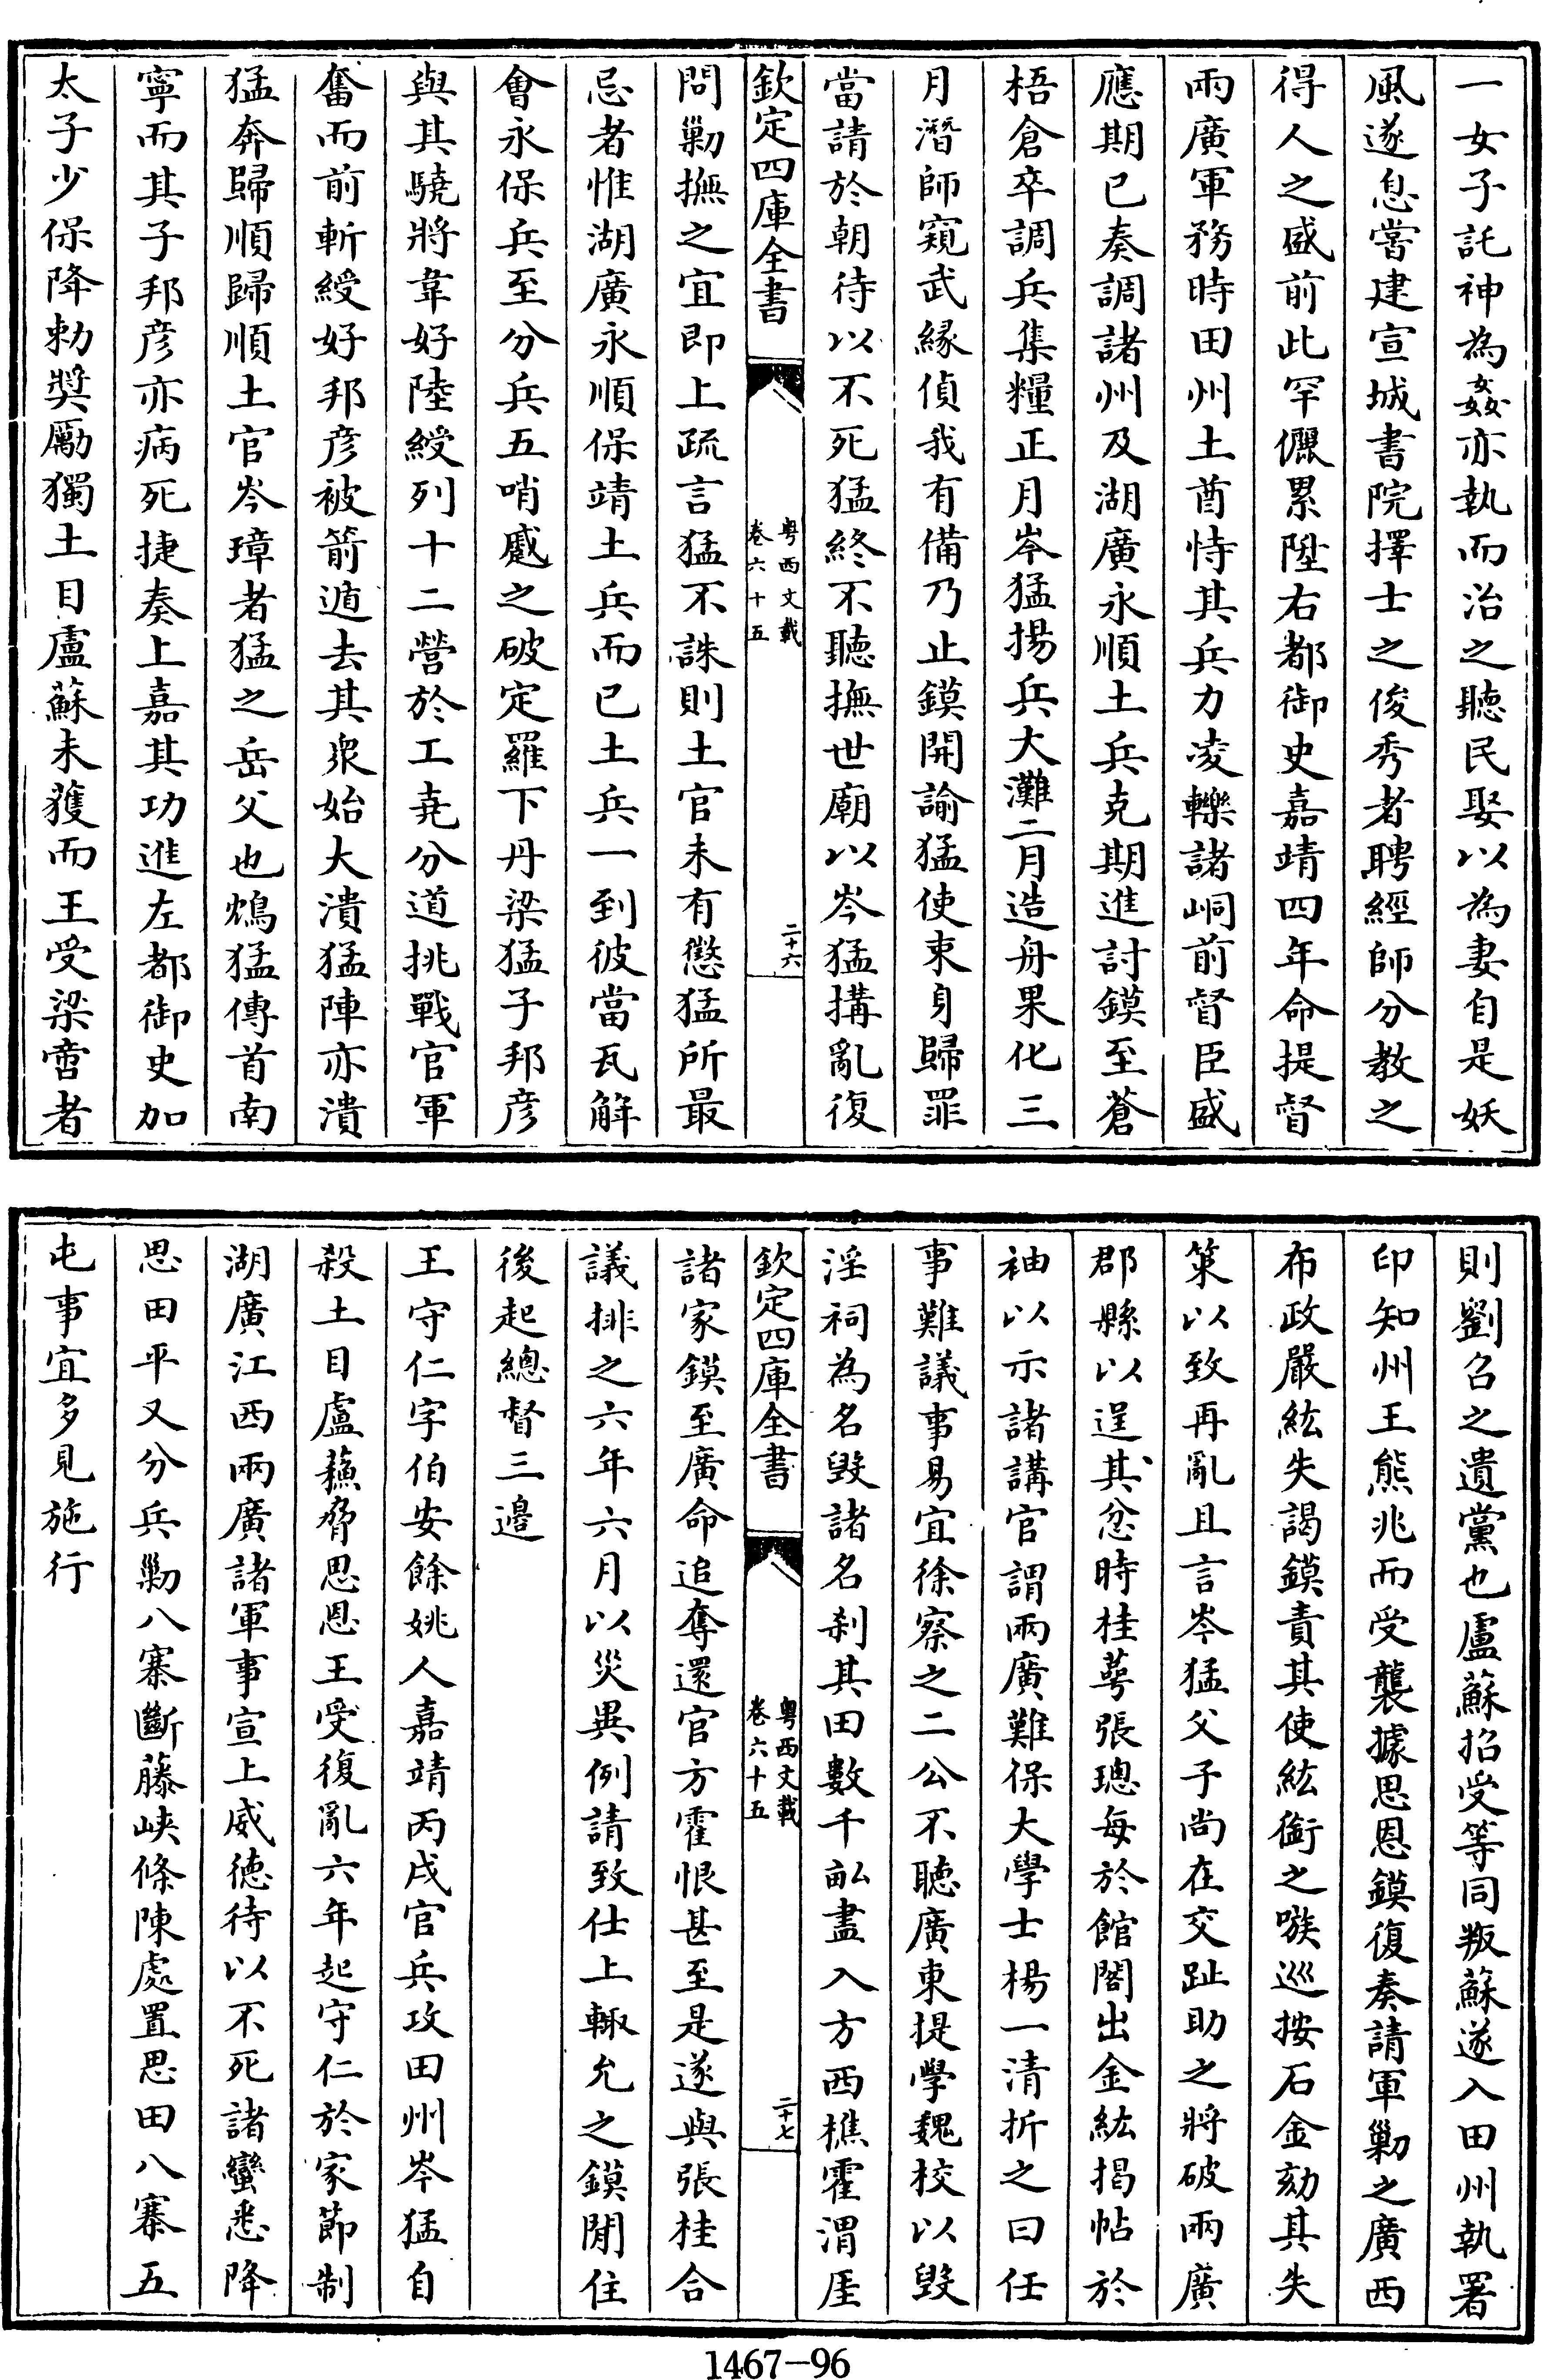 一女子託神為姦亦執而治之聽民娶以為妻自是妖
風遂息嘗建宣城書院擇士之俊秀者聘經師分教之
得人之盛前此罕儷累陞右都御史嘉靖四年命提督
兩廣軍務時田州土酋恃其兵力凌轢諸峒前督臣盛
應期已奏調諸州及湖廣永順土兵克期進討鏌至蒼
梧倉卒調兵集糧正月岑猛揚兵大灘二月造舟果化三
月潛師窺武緣偵我有備乃止鏌開諭猛使束身歸罪
當請於朝待以不死猛終不聽撫世廟以岑猛搆亂復
欽定四庫全書
粵西文載
卷六十五
二十六
問勦撫之宜即上疏言猛不誅則土官未有懲猛所最
忌者惟湖廣永順保靖土兵而已土兵一到彼當瓦解
會永保兵至分兵五哨蹙之破定羅下丹梁猛子邦彦
與其驍將韋好陸綬列十二營於工堯分道挑戰官軍
奮而前斬綬好邦彦被箭遁去其衆始大潰猛陣亦潰
猛奔歸順歸順土官岑璋者猛之岳父也鴆猛傳首南
寧而其子邦彦亦病死捷奏上嘉其功進左都御史加
太子少保降勅奬勵獨土目盧蘇未獲而王受梁啻者
則劉召之遺黨也盧蘇招受等同叛蘇遂入田州執署
印知州王熊兆而受襲據思恩鏌復奏請軍勦之廣西
布政嚴紘失謁鏌責其使紘銜之嗾巡按石金劾其失
策以致再亂且言岑猛父子尚在交趾助之將破兩廣
郡縣以逞其忿時桂萼張璁每於館閣出金紘揭帖於
袖以示諸講官謂兩廣難保大學士楊一清折之曰任
事難議事易宜徐察之二公不聽廣東提學魏校以毁
淫祠為名毁諸名刹其田數千畝盡入方西樵霍渭厓
欽定四庫全書
粵西文載
卷六十五
二十七
諸家鏌至廣命追奪還官方霍恨甚至是遂與張桂合
議排之六年六月以災異例請致仕上輙允之鏌閒住
後起總督三邉
王守仁字伯安餘姚人嘉靖丙戌官兵攻田州岑猛自
殺土目盧蘓脅思恩王受復亂六年起守仁於家節制
湖廣江西兩廣諸軍事宣上威德待以不死諸蠻悉降
思田平又分兵勦八寨斷藤峽條陳處置思田八寨五
屯事宜多見施行
1467-96